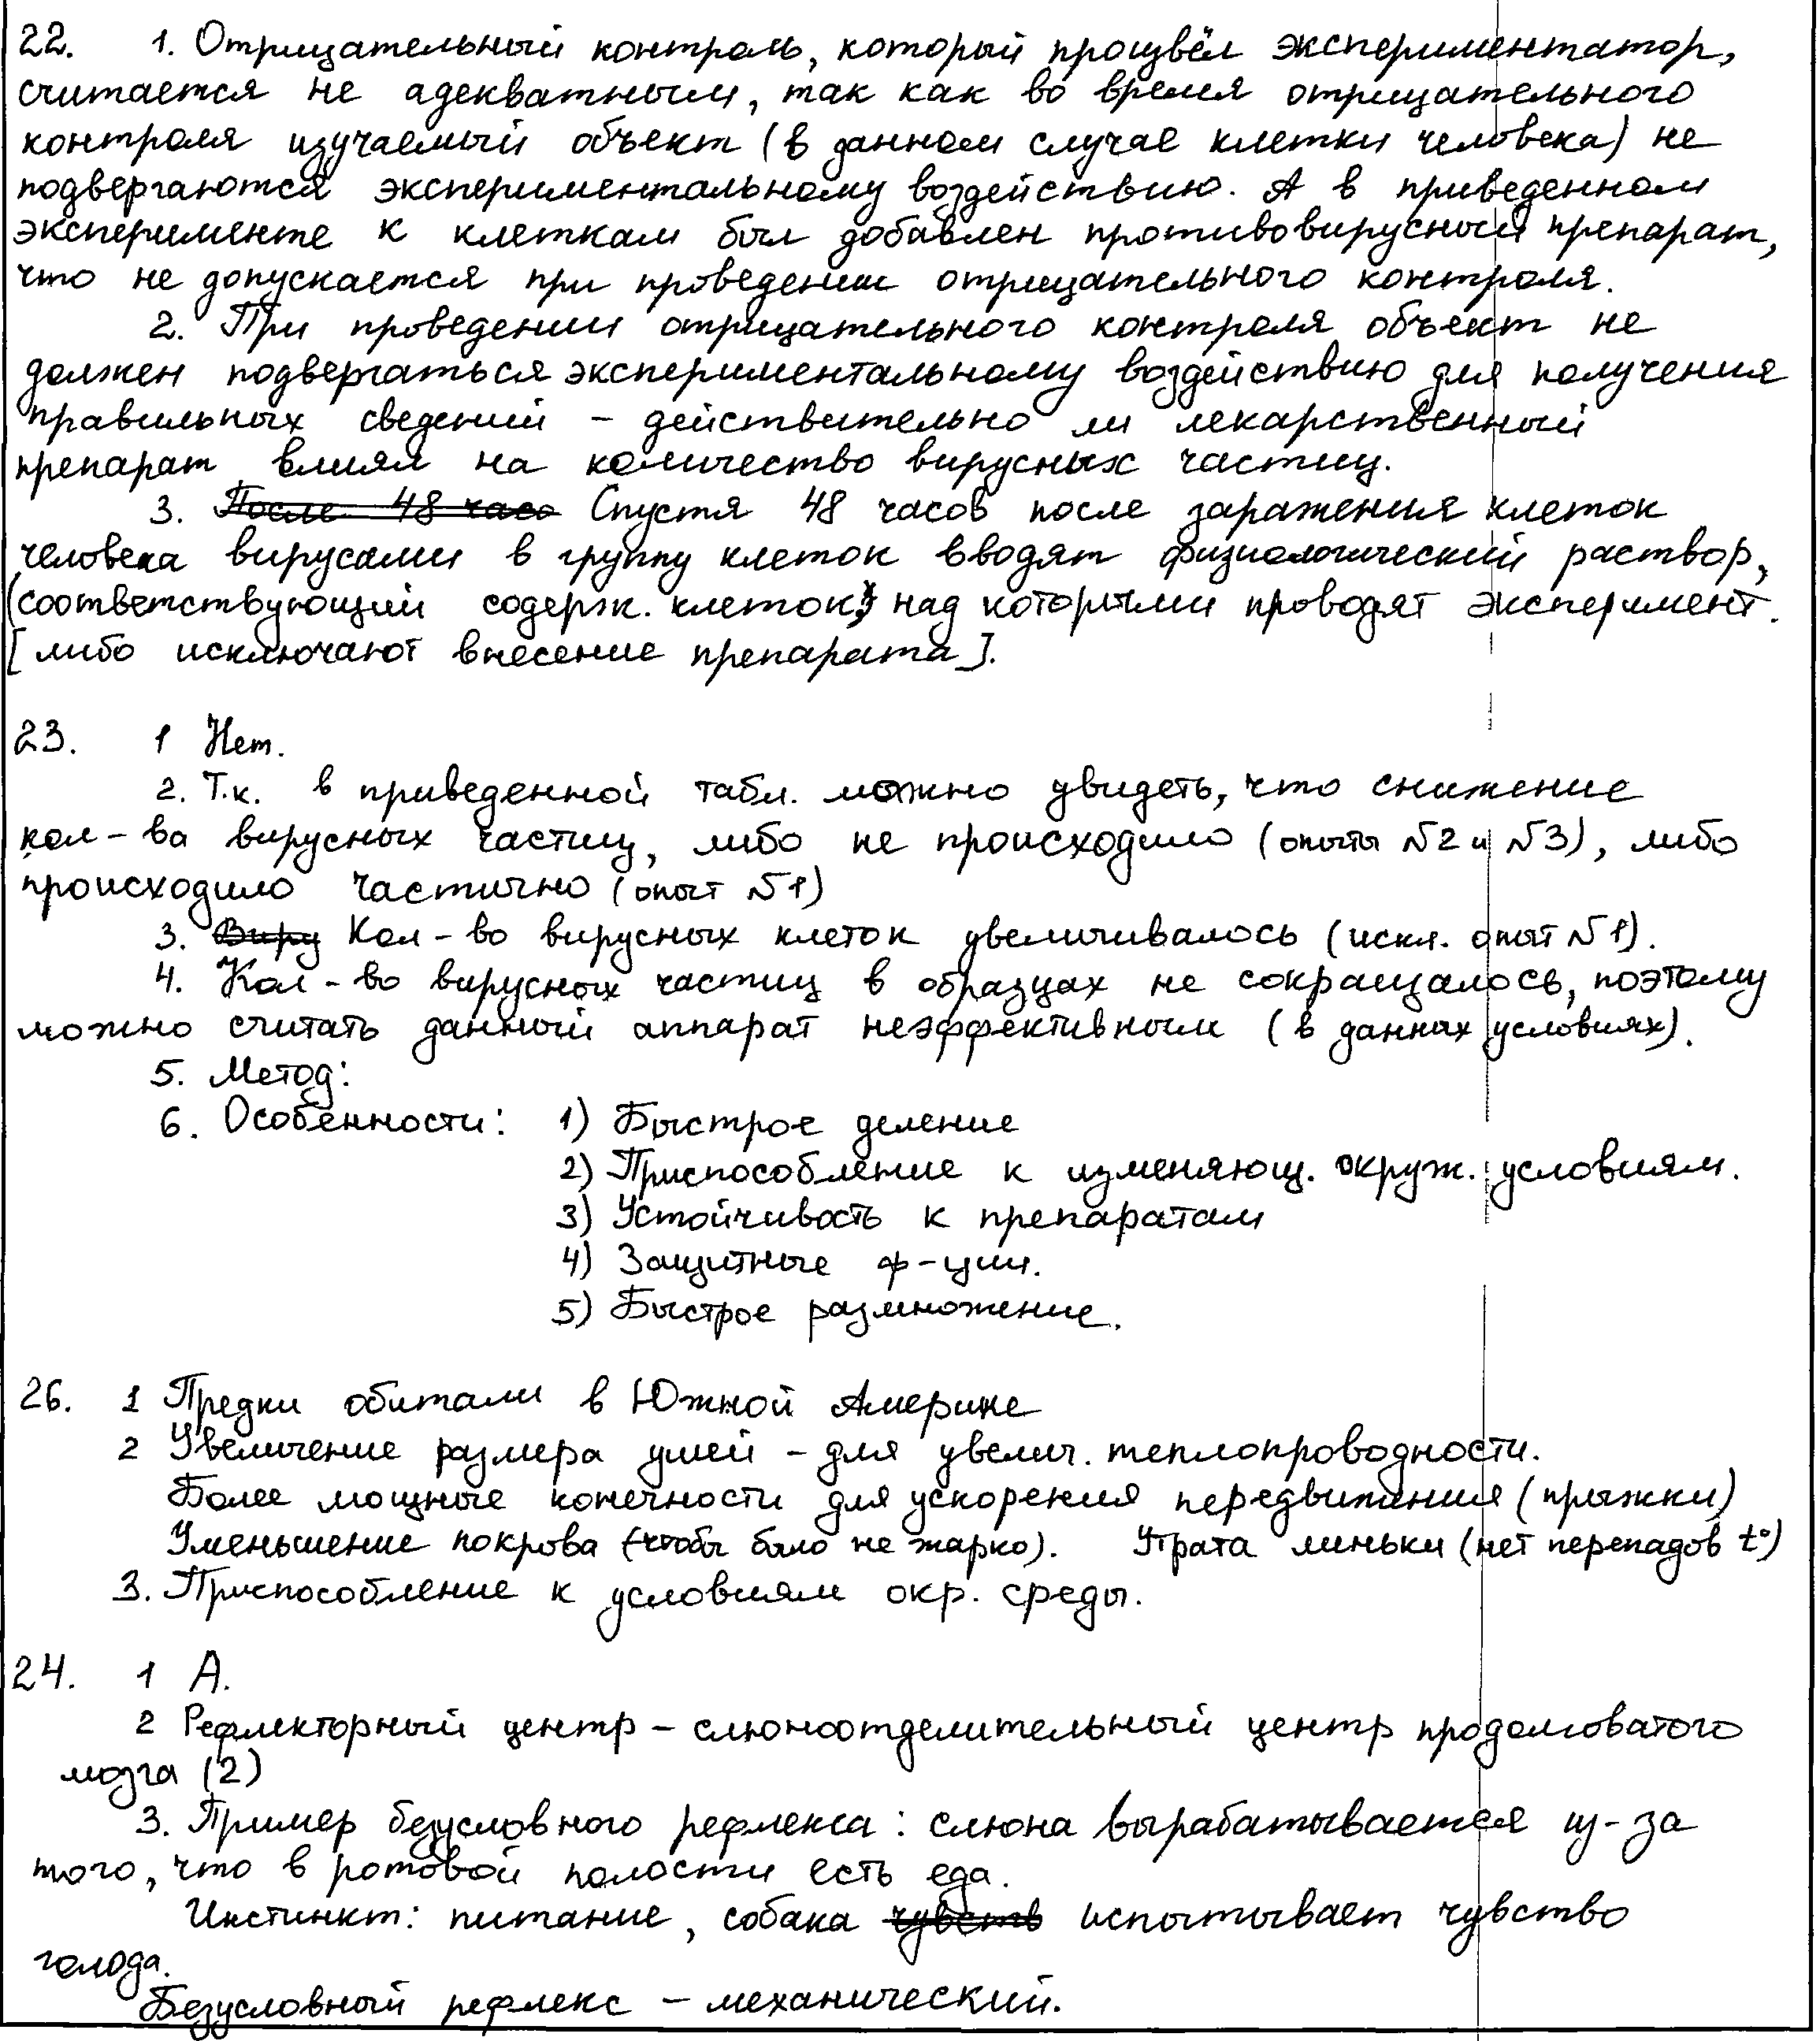 22. 1. Отрицательный контроль, который произвёл экспериментатор,
считается не адекватным, так как во время отрицательного
контроля изучаемый объект (в данном случае клетки человека) не
подвергаются экспериментальному воздействию. А в приведенном
эксперименте к клеткам был добавлен противовирусный препарат,
что не допускается при проведении отрицательного контроля.
2. При проведении отрицательного контроля объект не
должен подвергаться экспериментальному воздействию для получения
правильных сведений – действительно ли лекарственный
препарат влиял на количество вирусных частиц.
3. После 48 часо Спустя 48 часов после заражения клеток
человека вирусами в группу клеток вводят физиологический раствор,
(соответствующий содерж. клеток) над которыми проводят эксперимент.
[либо исключают внесение препарата].
23. 1 Нет.
2. Т.к. в приведенной табл. можно увидеть, что снижение
кол-ва вирусных частиц, либо не происходило (опыты №2 и №3), либо
происходило частично (опыт №1)
3. Виру Кол-во вирусных клеток увеличивалось (искл. опыт №1).
4. Кол-во вирусных частиц в образцах не сокращалось, поэтому
можно считать данный аппарат неэффективным (в данных условиях).
5. Метод:
6. Особенности: 1) Быстрое деление
2) Приспособление к изменяющ. окруж. условиям.
3) Устойчивость к препаратам
4) Защитные ф-ции.
5) Быстрое размножение.
26. 1 Предки обитали в Южной Америке
2 Увеличение размера ушей – для увелич. теплопроводности.
Более мощные конечности для ускорения передвижения (прыжки)
Уменьшение покрова (чтобы было не жарко). Утрата линьки (нет перепадов t°)
3. Приспособление к условиям окр. среды.
24. 1 А.
2 Рефлекторный центр – слюноотделительный центр продолговатого
мозга (2)
3. Пример безусловного рефлекса: слюна вырабатывается из-за
того, что в ротовой полости есть еда.
Инстинкт: питание, собака чувств испытывает чувство
голода.
Безусловный рефлекс – механический.